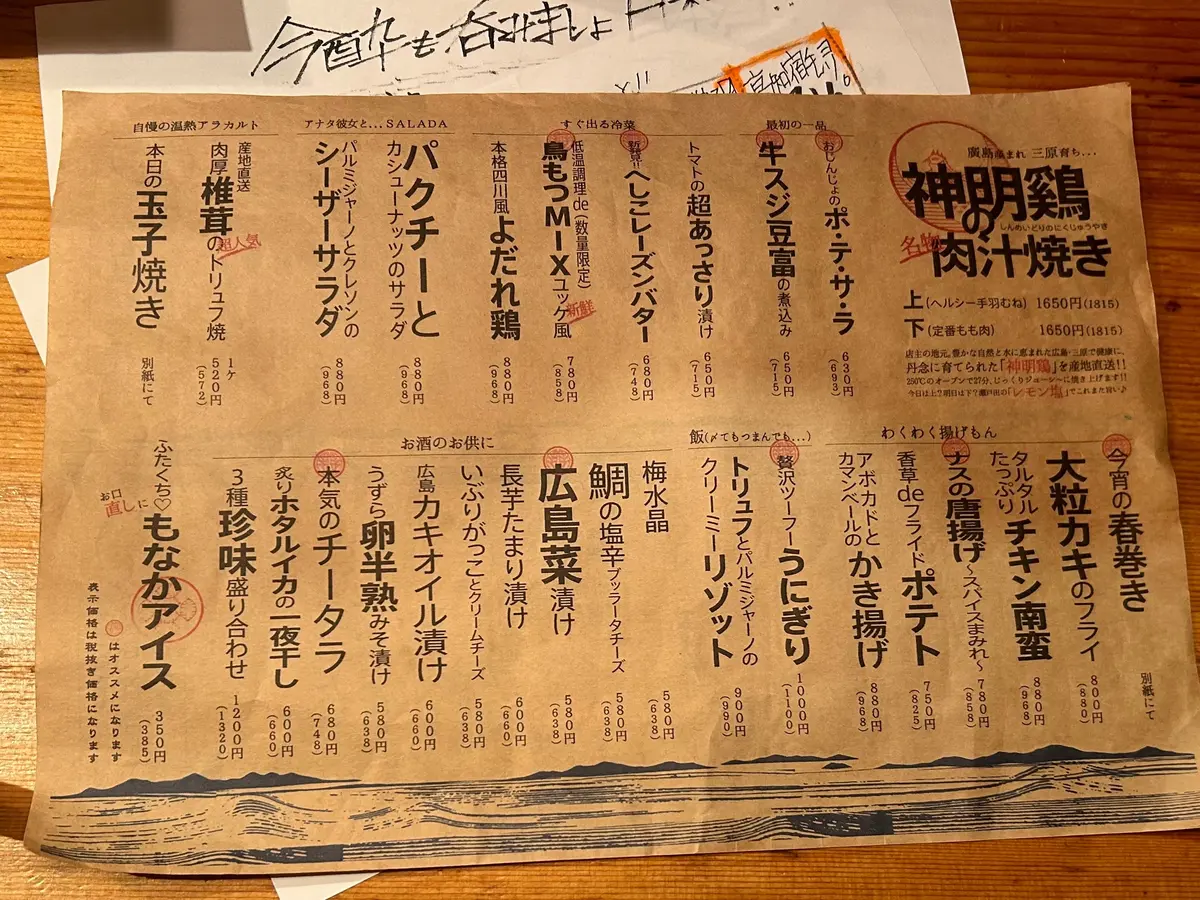 今酔も呑みましょ
廣島産まれ 三原育ち...
神明鶏の肉汁焼き
しんめいどりのにくじゅうやき
名物
上(ヘルシー手羽むね) 1650円(1815)
下(定番もも肉) 1650円(1815)
店主の地元。豊かな自然と水に恵まれた広島・三原で健康に、
丹念に育てられた「神明鶏」を産地直送!!
250℃のオーブンで27分、じっくりジューシ〜に焼き上げます!!
今日は上?明日は下?瀬戸田の「レモン塩」でこれまた旨い♪
最初の一品
おじんじょのポ・テ・サ・ラ 630円(693)
牛スジ豆富の煮込み 650円(715)
すぐ出る冷菜
トマトの超あっさり漬け 650円(715)
新発見!!へしこレーズンバター 680円(748)
低温調理de(数量限定)
鳥もつMIXユッケ風 780円(858)
新鮮
本格四川風よだれ鶏 880円(968)
アナタ彼女と...SALADA
パクチーと
カシューナッツのサラダ 880円(968)
パルミジャーノとクレソンの
シーザーサラダ 880円(968)
自慢の温熱アラカルト
産地直送
肉厚椎茸のトリュフ焼 1ヶ520円(572)
超人気
本日の玉子焼き 別紙にて
わくわく揚げもん
今宵の春巻き 別紙にて
大粒カキのフライ 800円(880)
タルタルたっぷり
チキン南蛮 880円(968)
ナスの唐揚げ〜スパイスまみれ〜 780円(858)
香草deフライドポテト 750円(825)
アボカドと
カマンベールのかき揚げ 880円(968)
飯(〆てもつまんでも...)
贅沢ツーフーうにぎり 1000円(1100)
トリュフとパルミジャーノの
クリーミーリゾット 900円(990)
お酒のお供に
梅水晶 580円(638)
鯛の塩辛ブッラータチーズ 580円(638)
広島菜漬け 580円(638)
長芋たまり漬け 600円(660)
いぶりがっことクリームチーズ 580円(638)
広島カキオイル漬け 600円(660)
うずら卵半熟みそ漬け 580円(638)
本気のチータラ 680円(748)
炙りホタルイカの一夜干し 600円(660)
3種珍味盛り合わせ 1200円(1320)
お口直しに
ふたくち♡もなかアイス 350円(385)
はオススメになります
表示価格は税抜き価格になります